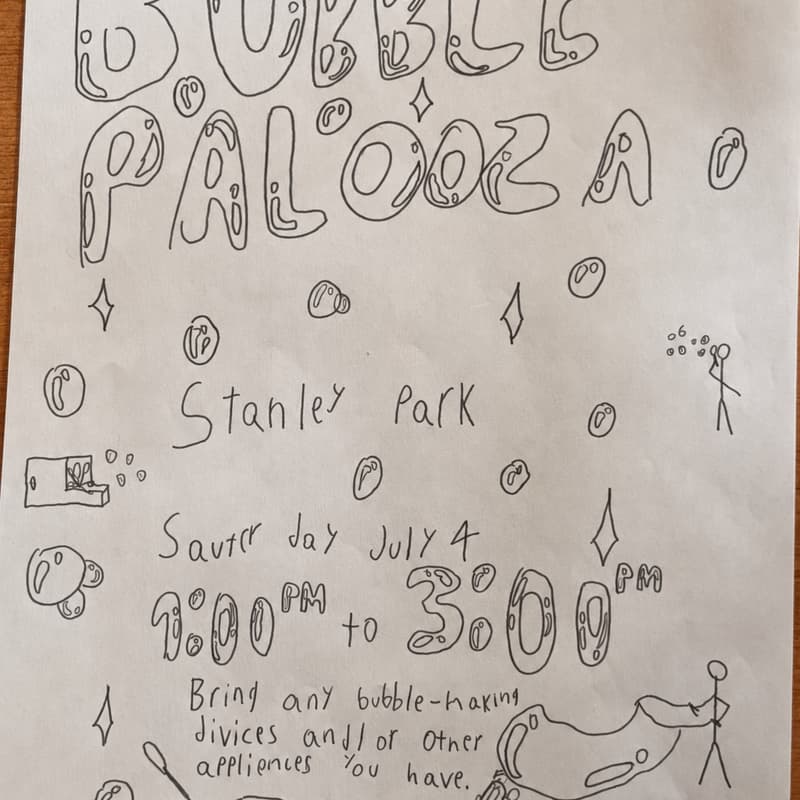 BUBBLE
PALOOZA
Stanley Park
Sauter day July 4
1:00 PM to 3:00 PM
Bring any bubble-making
divices and/or other
appliences You have.